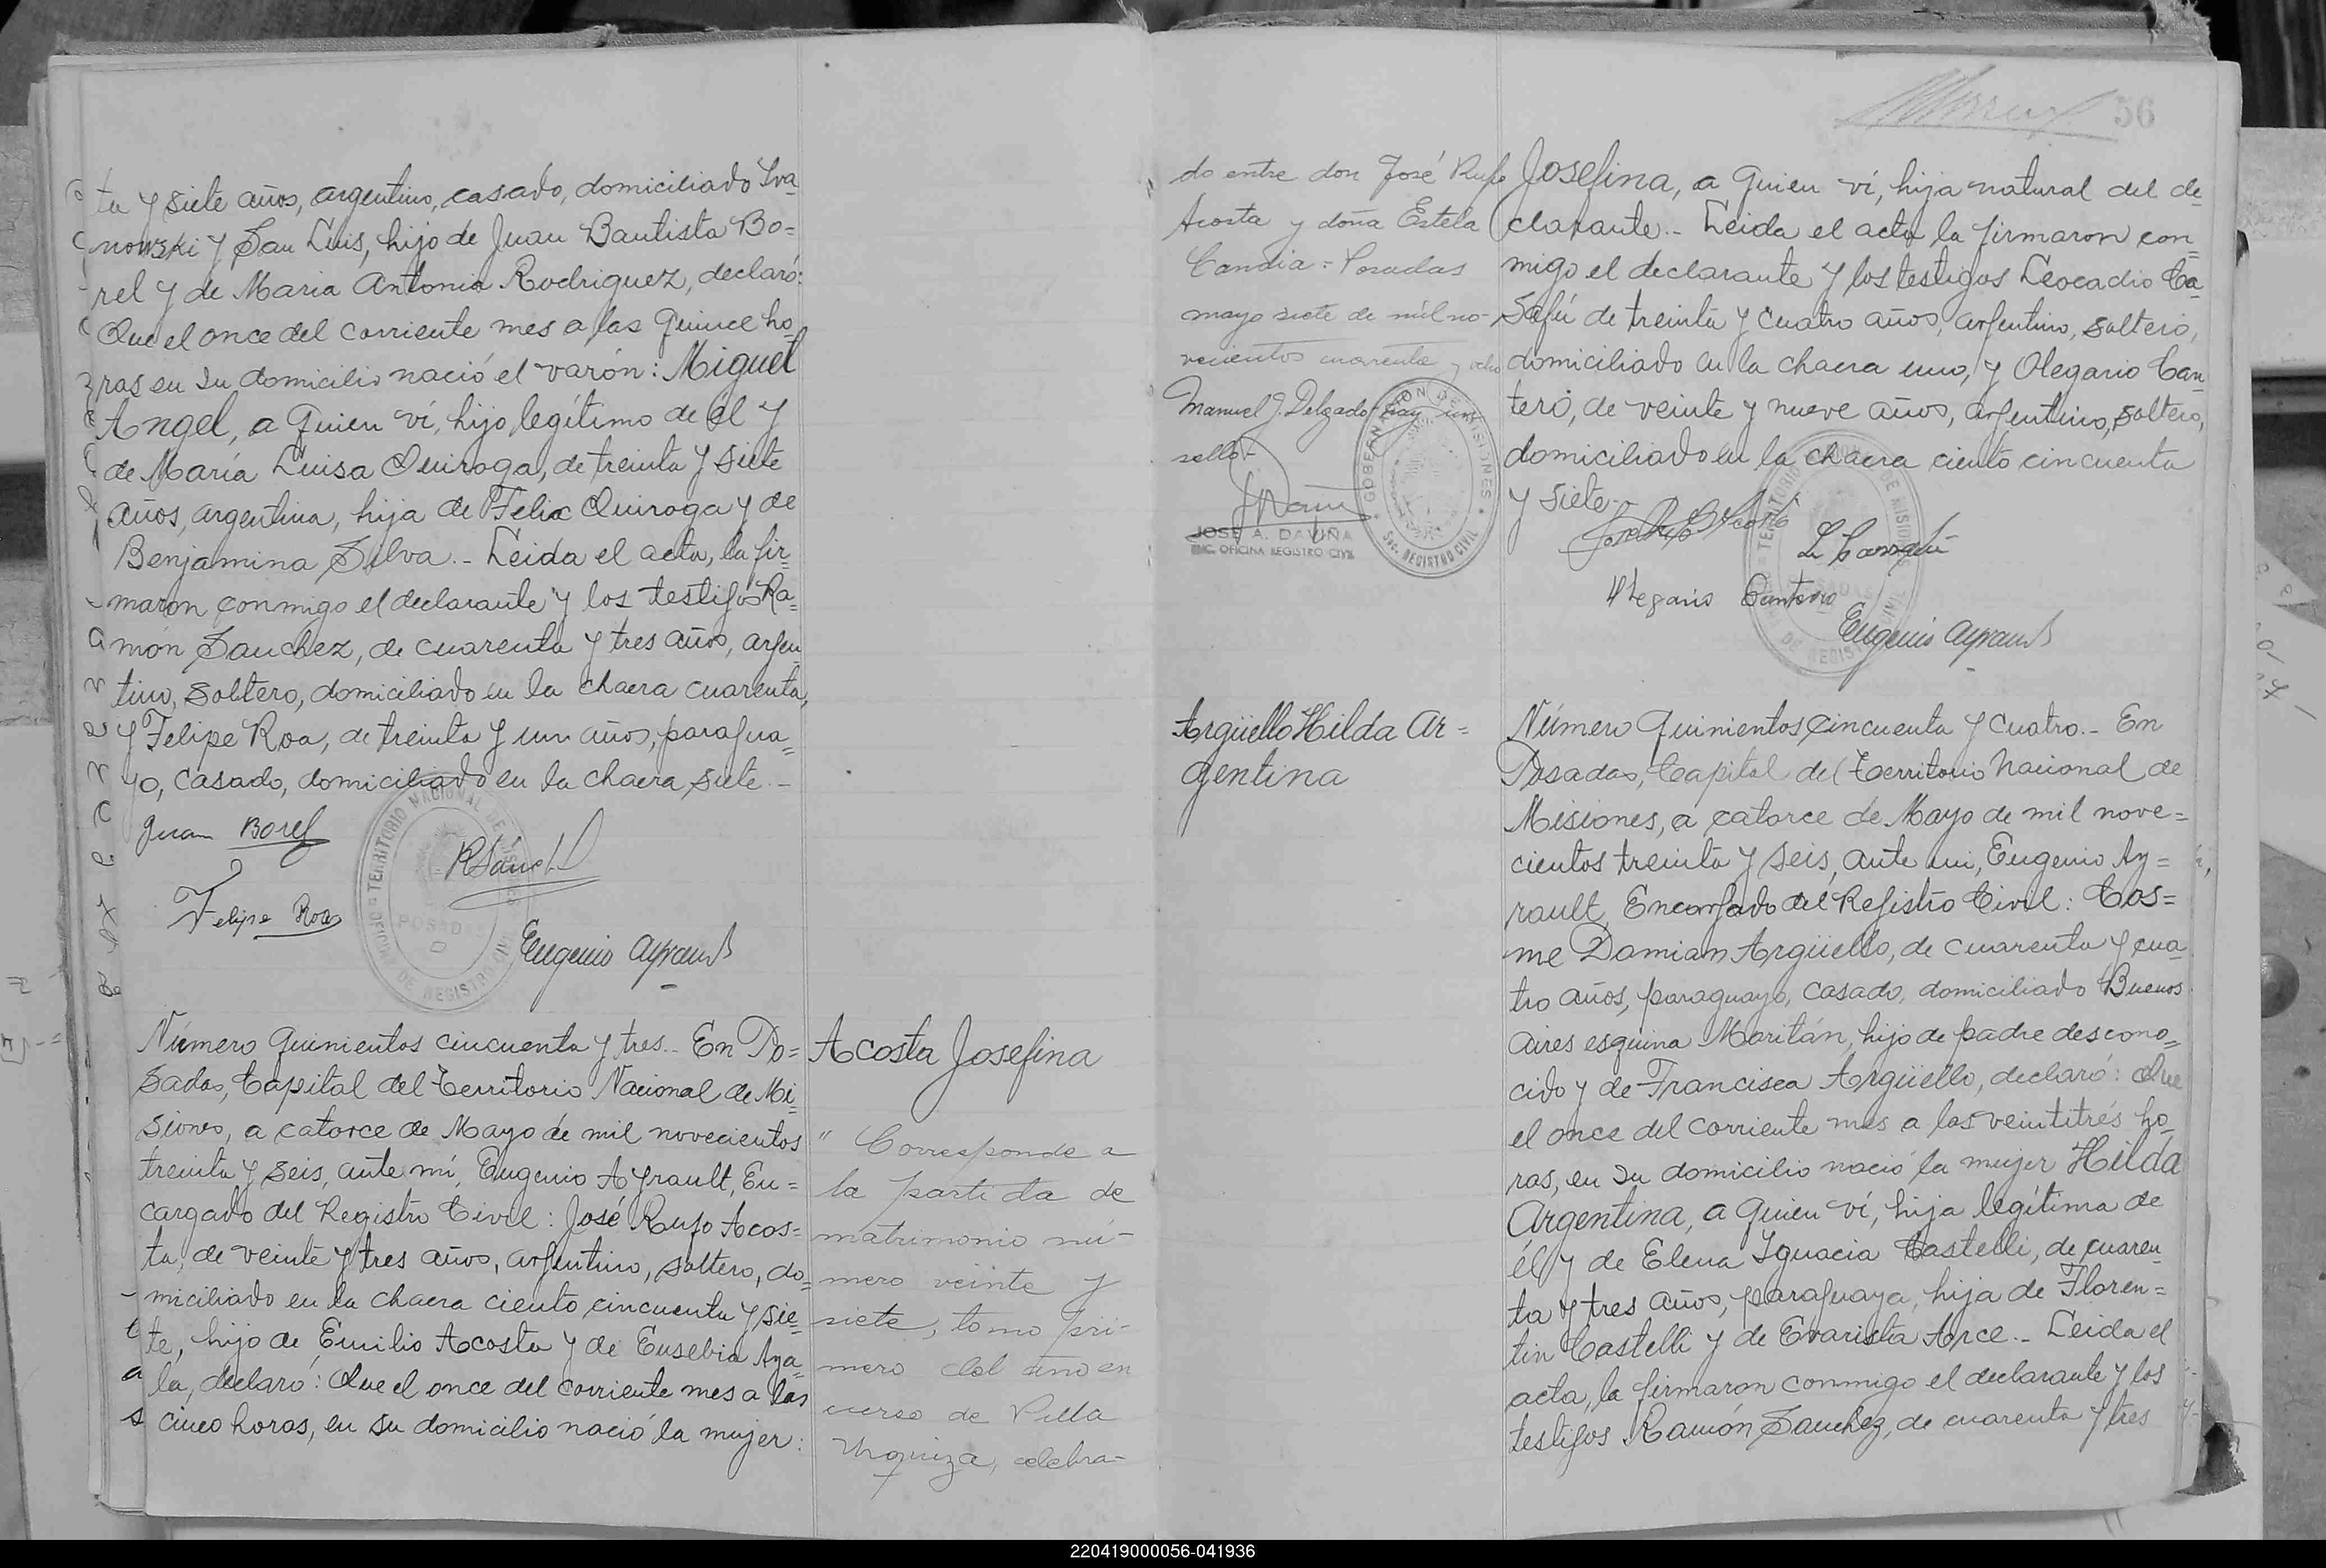 ta y siete años, argentino, casado, domiciliado Iva
nowski y San Luis, hijo de Juan Bautista Bo=
rel y de Maria Antonia Rodriguez, declaró:
Que el once del corriente mes a las quince ho
ras en su domicilio nació el varón: Miguel
Angel, a quien ví, hijo legítimo de él y
de María Luisa Quiroga, de treinta y siete
años, argentina, hija de Felix Quiroga y de
Benjamina Silva.- Leida el acta, la fir=
maron conmigo el declarante y los testigos Ra=
món Sanchez, de cuarenta y tres años, argen
tino, soltero, domiciliado en la chacra cuarenta,
y Felipe Roa, de treinta y un años, paragua=
yo, casado, domiciliado en la chacra siete.-
Juan Borel
RSanch
Felipe Roa
Eugenio Ayrault
TERRITORIO NACIONAL DE MISIONES
OFICINA DE REGISTRO CIVIL
POSADAS
Número quinientos cincuenta y tres.- En Po=
sadas, Capital del Territorio Nacional de Mi=
siones, a catorce de Mayo de mil novecientos
treinta y seis, ante mí, Eugenio Ayrault, En=
cargado del Registro Civil: José Rufo Acos=
ta, de veinte y tres años, argentino, soltero, do=
miciliado en la chacra ciento cincuenta y sie=
te, hijo de Emilio Acosta y de Eusebia Aya=
la, declaró: Que el once del corriente mes a las
cinco horas, en su domicilio nació la mujer:
Acosta Josefina
" Corresponde a
la partida de
matrimonio nú-
mero veinte y
siete, tomo pri-
mero del año en
curso de Villa
Urquiza, celebra-
do entre don José Rufo
Acosta y doña Estela
Candia = Posadas
mayo siete de mil no-
vecientos cuarenta y ocho
Manuel J. Delgado hay un
sello-
JOSE A. DAVIÑA
ENC. OFICINA REGISTRO CIVIL
GOBERNACION DE MISIONES
Sec. REGISTRO CIVIL
56
Josefina, a quien ví, hija natural del de
clarante.- Leida el acta la firmaron con=
migo el declarante y los testigos Leocadio Ca=
safú de treinta y cuatro años, argentino, soltero,
domiciliado en la chacra uno, y Olegario Can
tero, de veinte y nueve años, argentino, soltero,
domiciliado en la chacra ciento cincuenta
y siete.-
José Rufo Acosta
Olegario Cantero
Eugenio Ayrault
Argüello Hilda Ar=
gentina
Número quinientos cincuenta y cuatro.- En
Posadas, Capital del Territorio Nacional de
Misiones, a catorce de Mayo de mil nove=
cientos treinta y seis, ante mi, Eugenio Ay=
rault, Encargado del Registro Civil: Cos=
me Damian Argüello, de cuarenta y cua
tro años, paraguayo, casado, domiciliado Buenos
Aires esquina Moritán, hijo de padre descono=
cido y de Francisca Argüello, declaró: Que
el once del corriente mes a las veintitrés ho
ras, en su domicilio nació la mujer Hilda
Argentina, a quien ví, hija legítima de
él y de Elena Ignacia Castelli, de cuaren
ta y tres años, paraguaya, hija de Floren=
tin Castelli y de Evarista Arce.- Leida el
acta, la firmaron conmigo el declarante y los
testigos Ramón Sanchez, de cuarenta y tres
220419000056-041936